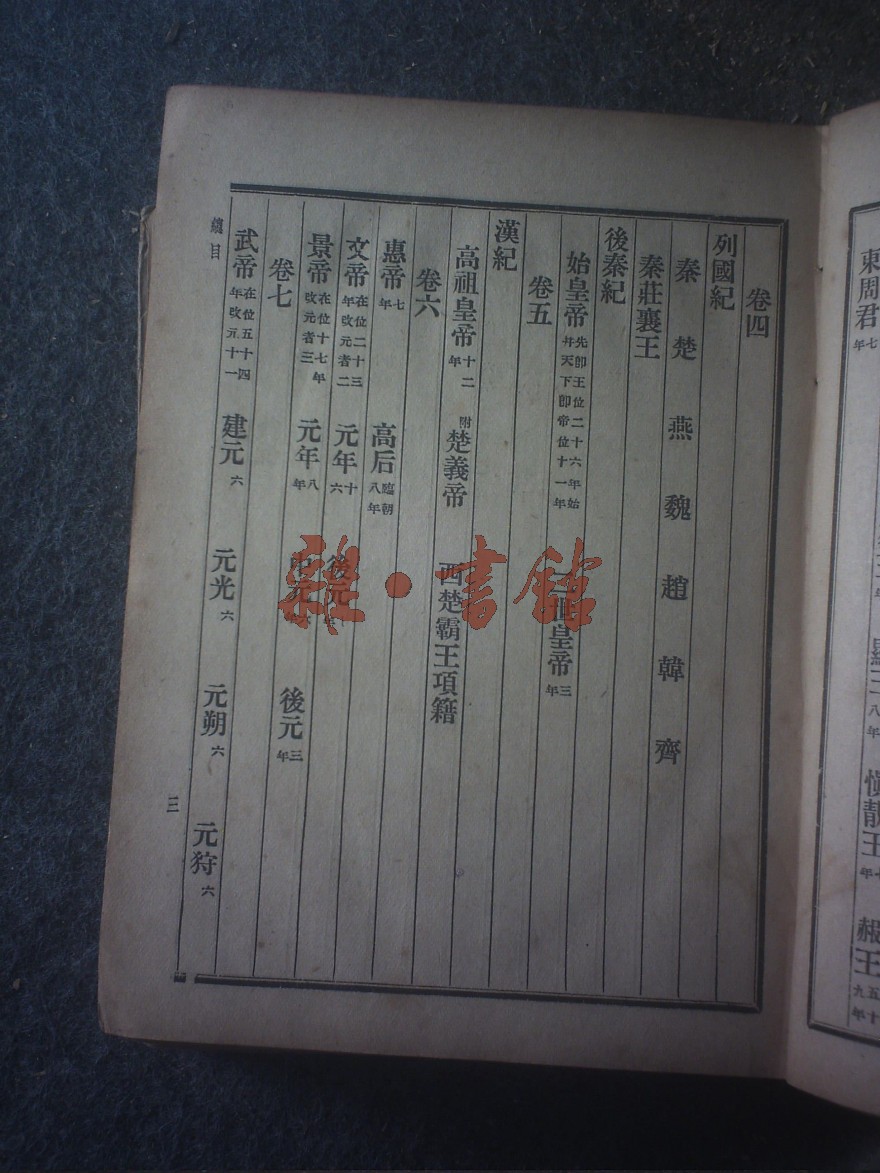 東周君七年
顯王八年
慎靚王
赧王五十九年
卷四
列國紀
秦 楚 燕 魏 趙 韓 齊
秦莊襄王
後秦紀
始皇帝先卽王位二十六年始幷天下卽帝位十一年 二世皇帝三年
卷五
漢紀
高祖皇帝十二年 附楚義帝 西楚霸王項籍
卷六
惠帝七年 高后臨朝八年
文帝在位二十三年改元者二 元年十六 後元年
景帝在位十七年改元者三 元年八年 中元六年 後元三年
卷七
武帝在位五十四年改元十一 建元六 元光六 元朔六 元狩六
總目
三
雜·書館